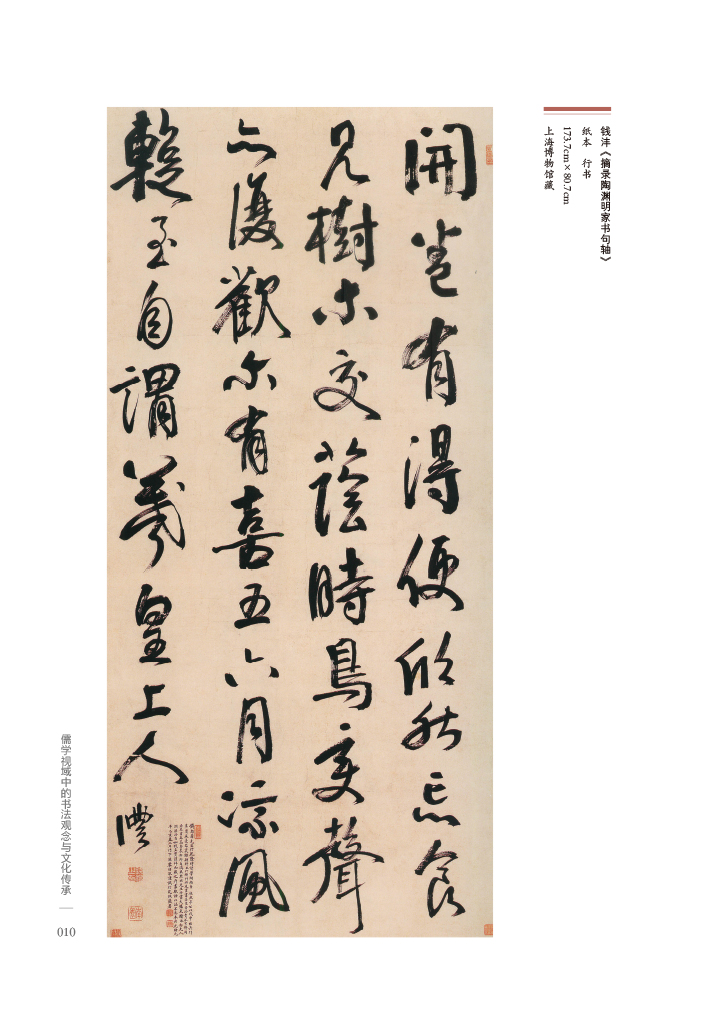 開卷有得便欣然忘食
見樹木交蔭時鳥變聲
亦復歡尒有喜五六月涼風
暫至自謂羲皇上人 灃
钱沣《摘录陶渊明家书句轴》
纸本 行书
173.7cm×80.7cm
上海博物馆藏
儒学视域中的书法观念与文化传承
010